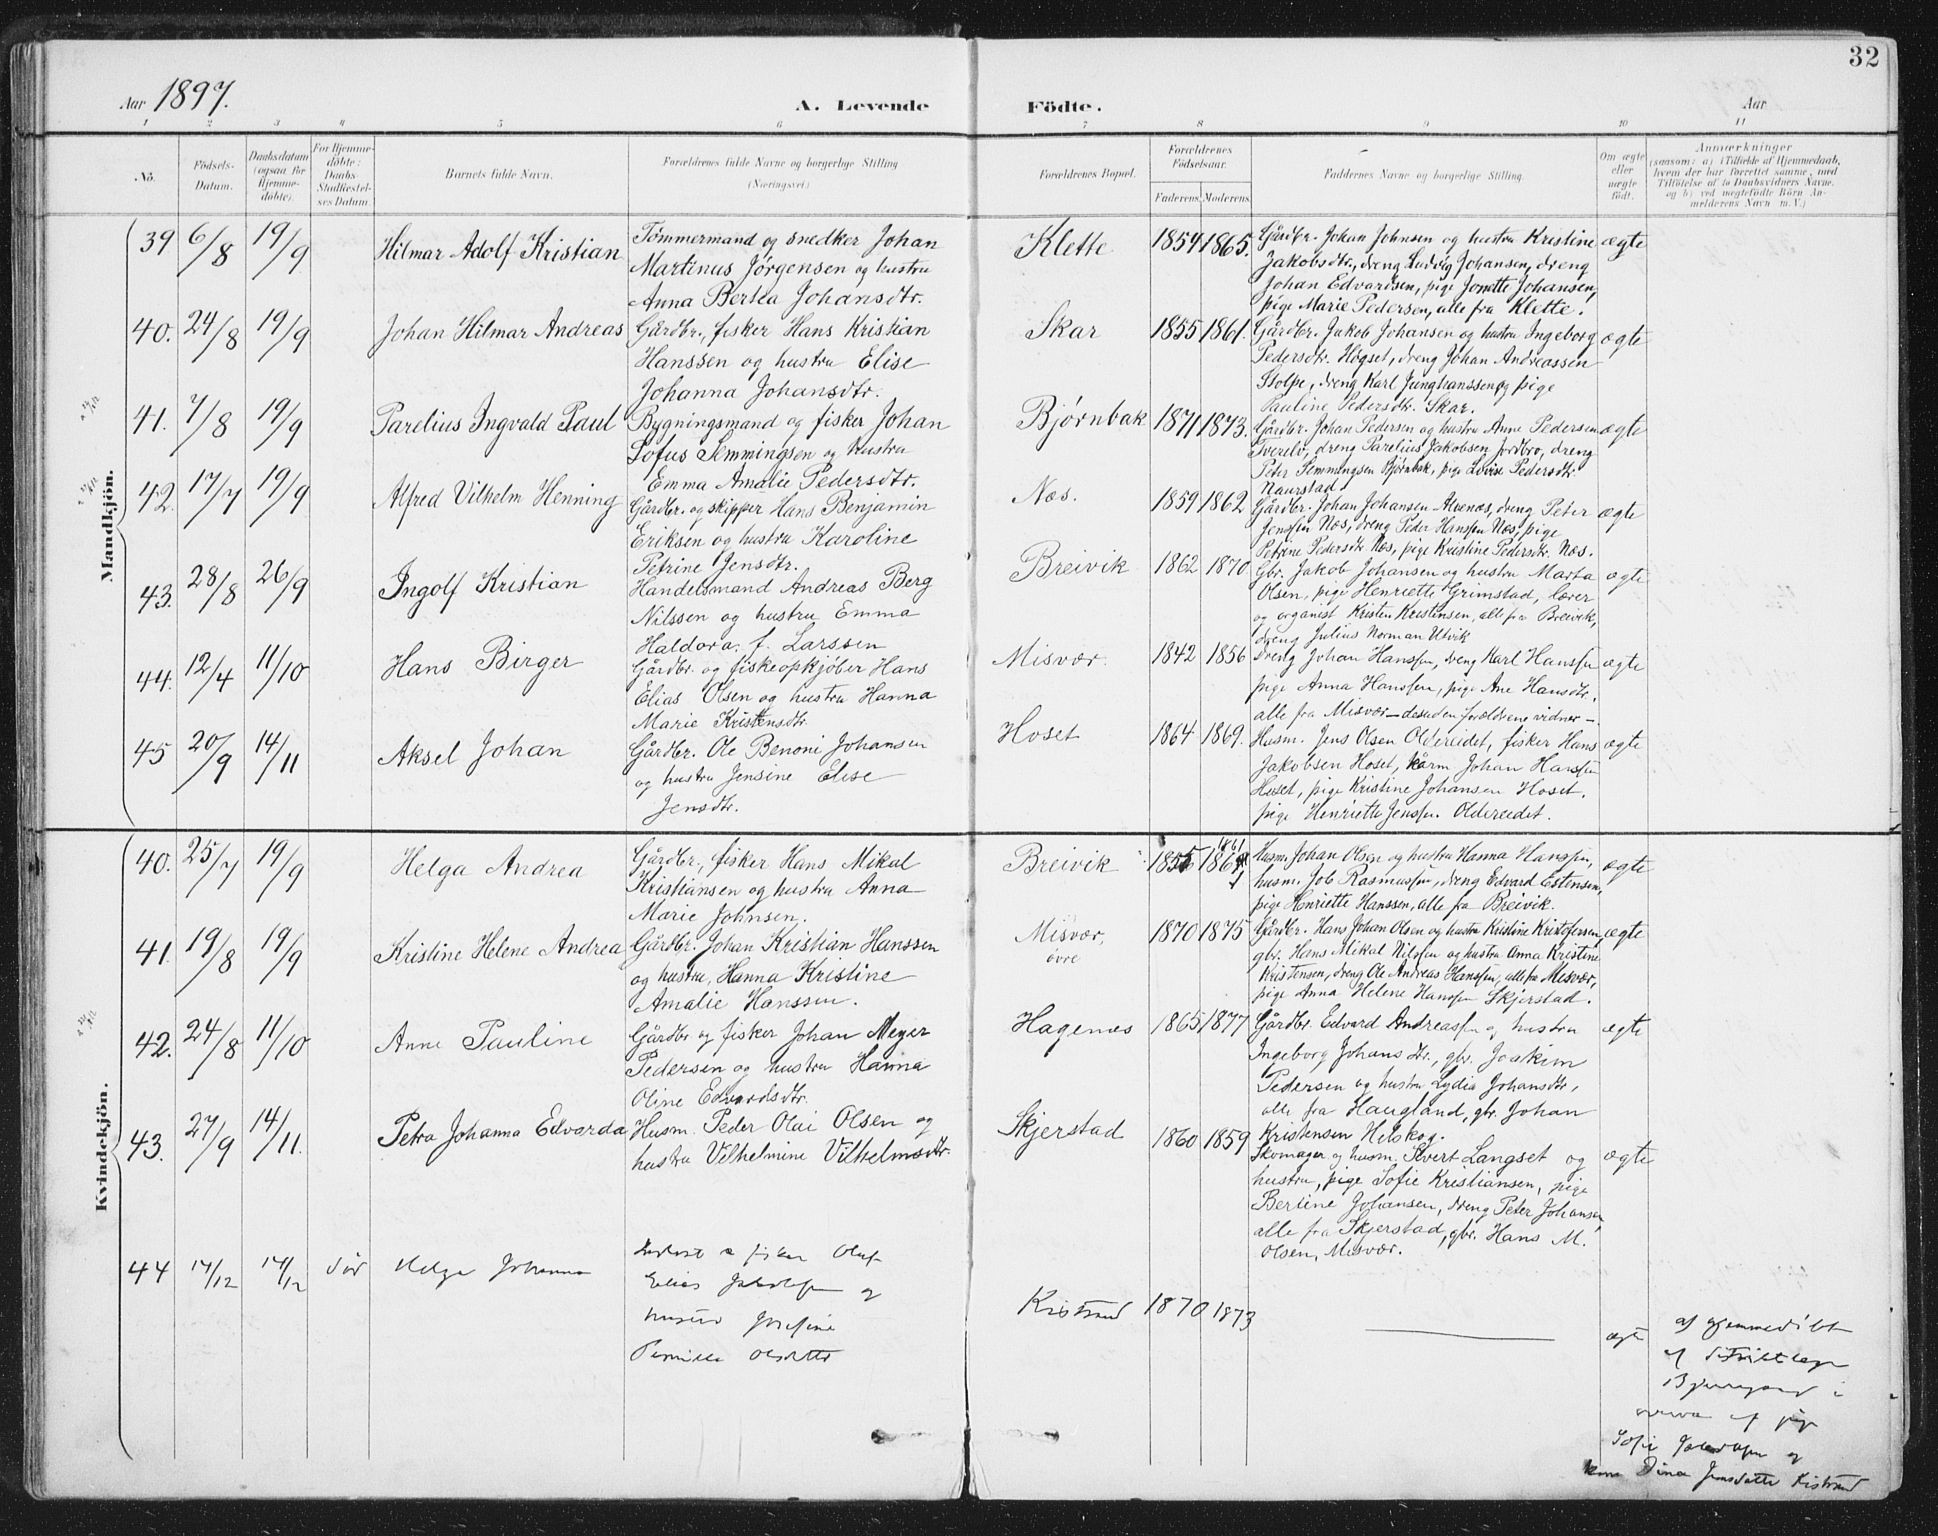 32
Aar 1897.
A. Levende Födte.
Aar
1 2 3 4 5 6 7 8 9 10 11
No.
Födsels-
Datum.
Daabsdatum
(ogsaa for
Hjemme-
döbte).
For Hjemme-
döbte:
Daabs-
Stadfæstel-
ses Datum.
Barnets fulde Navn.
Forældrenes fulde Navne og borgerlige Stilling
(Næringsvei)
Forældrenes Bopæl.
Forældrenes
Födselsaar.
Faderens Moderens
Faddernes Navne og borgerlige Stilling.
Om ægte
eller
uægte
födt.
Anmærkninger
(saasom: a) i Tilfælde af Hjemmedaab,
hvem der har forrettet samme, med
Tilföielse af to Daabsvidners Navne,
og b) ved uægtefödte Börn An-
melderens Navn m. V.)
Mandkjön.
39 6/8 19/9
Hilmar Adolf Kristian
Tømmermand og snedker Johan
Martinus Jörgensen og hustru
Anna Bertea Johansdtr.
Klette
1854 1865.
Gårdbr. Johan Johnsen og hustru Kristine
Jakobsdtr., dreng Ludvig Johansen, dreng
Johan Edvardsen, pige Jonette Johansen,
pige Marie Pedersen, alle fra Klette.
ægte
40. 24/8 19/9
Johan Hilmar Andreas
Gårdbr., fisker Hans Kristian
Hanssen og hustru Elise
Johanna Johansdtr.
Skar
1855 1861.
Gårdbr. Jakob Johansen og hustru Ingeborg
Pedersdtr. Högset, dreng Johan Andreassen
Stolpe, dreng Karl Junghanssen og pige
Pauline Pedersdtr. Skar.
ægte
41. 7/8 19/9
Parelius Ingvald Paul
Bygningsmand og fisker Johan
Sofus Semmingsen og hustru
Emma Amalie Pedersdtr.
Bjørnbak
1871 1873.
Gårdbr. Johan Pedersen og hustru Anne Pedersen
Tverelv, dreng Parelius Jakobsen Jordbro, dreng
Peter Semmingsen Bjørnbak, pige Lovise Pedersdtr.
Naurstad
ægte
42. 17/7 19/9
Alfred Vilhelm Henning
Gårdbr. og skipper Hans Benjamin
Eriksen og hustru Karoline
Petrine Jensdtr.
Næs.
1859 1862
Gårdbr. Johan Johansen Alvenæs, dreng Peter
Jenssen Næs, dreng Peder Hanssen Næs, pige
Petrine Pedersdtr Næs, pige Kristine Pedersdtr. Næs.
ægte
43. 28/8 26/9
Ingolf Kristian
Handelsmand Andreas Berg
Nilssen og hustru Emma
Haldora, f. Larssen
Breivik
1862 1870
Gbr. Jakob Johansen og hustru Marta
Olsen, pige Henriette Grimstad, lærer
og organist Kristen Kristensen, alle fra Breivik,
dreng Julius Norman Utvik
ægte
44. 12/4 11/10
Hans Birger
Gårdbr. og fiskeopkjöber Hans
Elias Olsen og hustru Hanna
Marie Kristensdtr.
Misvær.
1842 1856
dreng Johan Hanssen, dreng Karl Hanssen
pige Anna Hanssen, pige Ane Hansdtr.
alle fra Misvær – desuden forældrene vidner –.
ægte
45 20/9 14/11
Aksel Johan
Gårdbr. Ole Benoni Johansen
og hustru Jensine Elise
Jensdtr.
Hoset
1864 1869.
Husm. Jens Olsen Oldereidet, fisker Hans
Jakobsen Hoset, kårm Johan Hanssen
Huset, pige Kristine Johansen Hoset.
pige Henriette Jenssen. Oldereidet.
ægte
Kvindekjön.
40. 25/7 19/9
Helga Andrea
Gårdbr., fisker Hans Mikal
Kristiansen og hustru Anna
Marie Johnsen.
Breivik
1861
Husm. Johan Olsen og hustru Hanna Hanssen,
husm. Job Rasmussen, dreng Edvard Estensen,
pige Henriette Hanssen, alle fra Breivik.
ægte
41. 19/8 19/9
Kristine Helene Andrea
Gårdbr. Johan Kristian Hanssen
og hustru, Hanna Kristine
Amalie Hanssen.
Misvær,
övre
1870 1875
Gårdbr. Hans Johan Olsen og hustru Kristine Kristofersen,
gbr. Hans Mikal Nilssen og hustru Anna Kristine
Kristensen, dreng Ole Andreas Hanssen, alle fra Misvær,
pige Anna Helene Hanssen Skjerstad.
ægte
42. 24/8 11/10
Anne Pauline
Gårdbr og fisker Johan Meyer
Pedersen og hustru Hanna
Oline Edvardsdtr.
Hagenæs
1865 1877
Gårdbr. Edvard Andreassen og hustru
Ingeborg Johansdtr., gbr. Joakim
Pedersen og hustru Lydia Johansdtr,
alle fra Haugland, gbr. Johan
Kristensen Helskog.
ægte
43. 27/9 14/11.
Petra Johanna Edvarda
Husm. Peder Olai Olsen og
hustru Vilhelmine Vilhelmsdtr.
Skjerstad
1860 1859
Skomager og husm. Sivert Langset og
hustru, pige Sofie Kristiansen, pige
Berline Johansen, dreng Peter Johansen,
alle fra Skjerstad, gbr. Hans M.
Olsen, Misvær.
ægte
44 17/12 17/12 död
Helga Johanna
fisker Oluf
Elias og
hustru Josefine
Pernille Olsdatter
Kistrand
1870 1873
ægte
af
i
af pige
Sofie og
kone Dina Jensdatter Kistrand